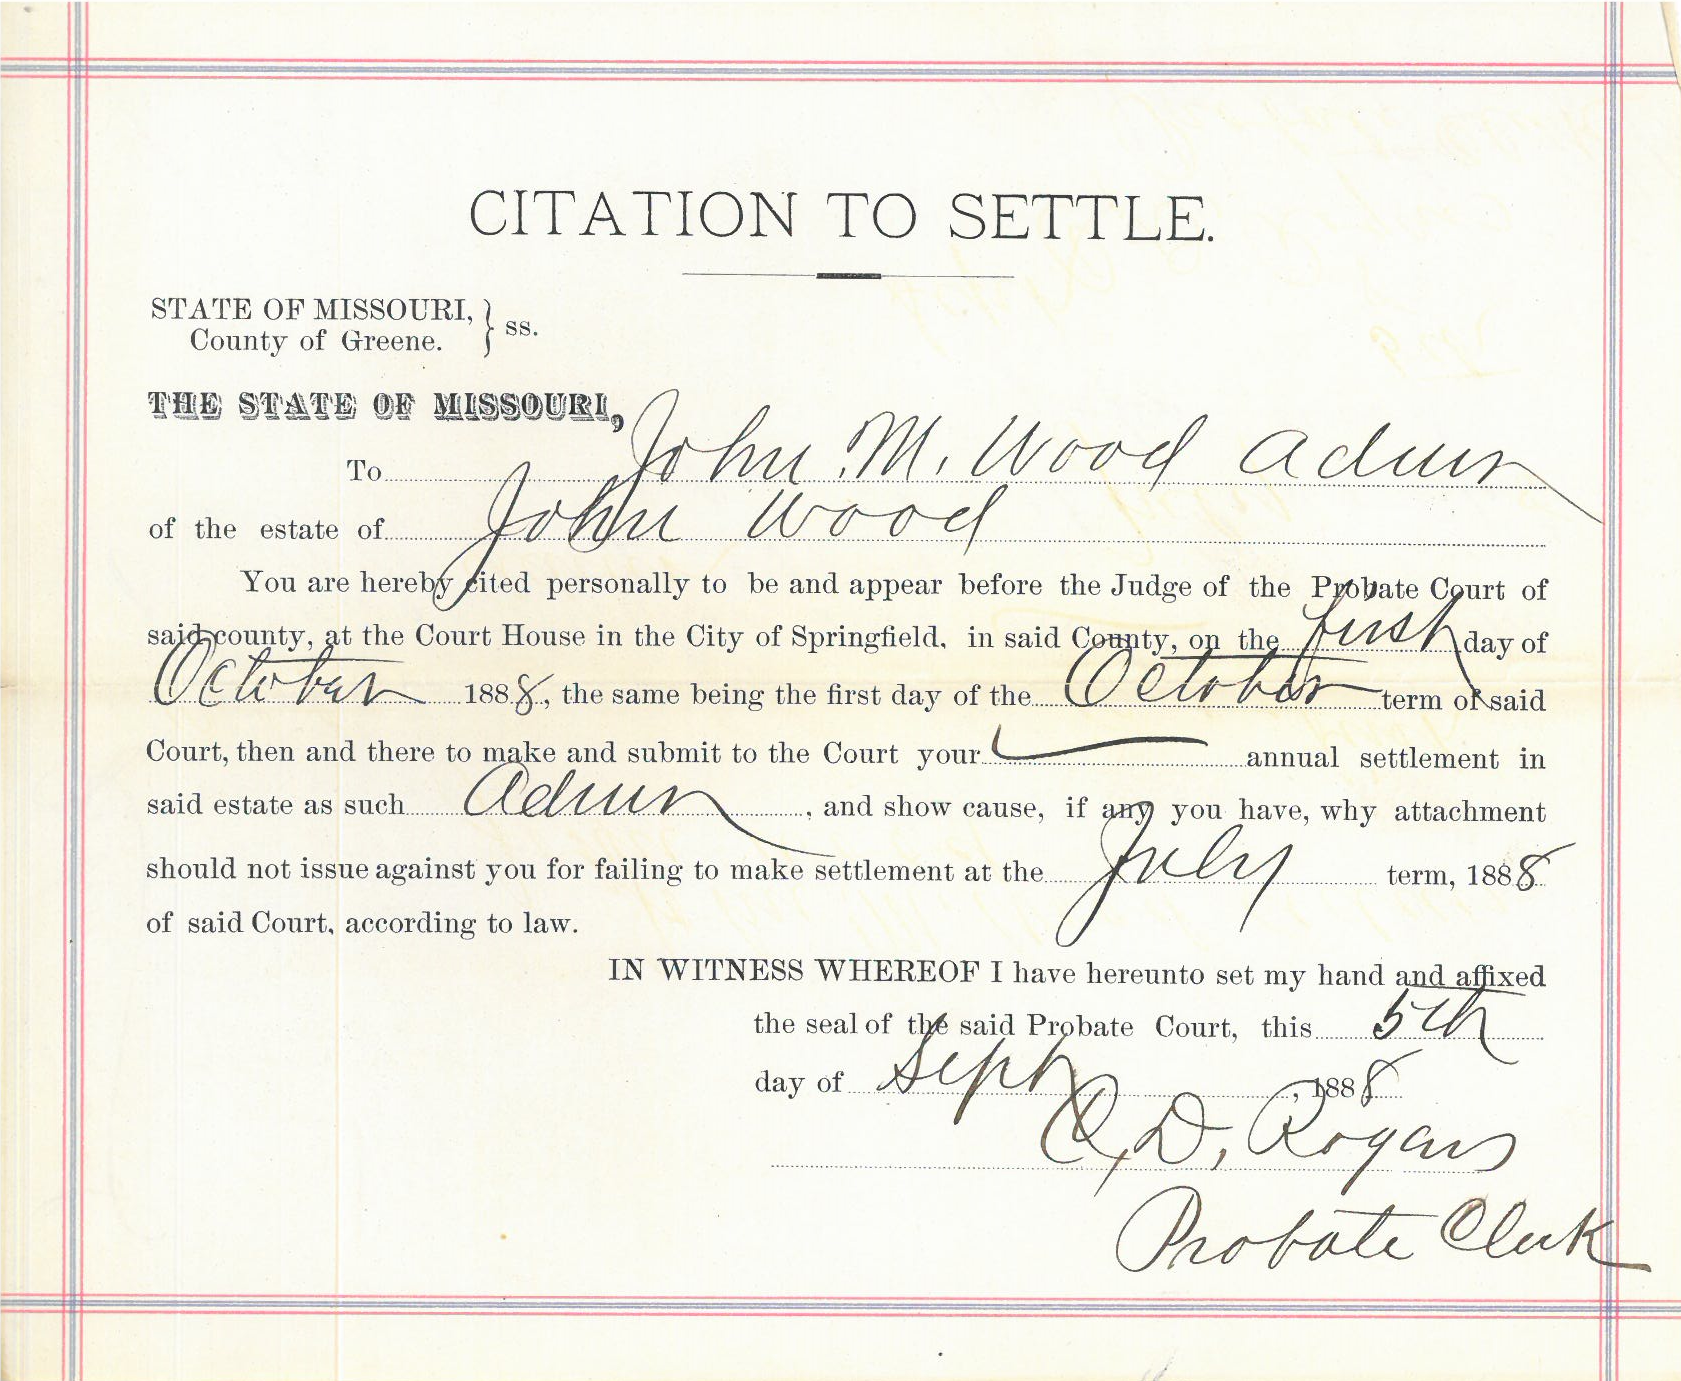 CITATION TO SETTLE.
STATE OF MISSOURI, } ss.
County of Greene.
THE STATE OF MISSOURI,
To John M. Wood Admr
of the estate of John Wood
You are hereby cited personally to be and appear before the Judge of the Probate Court of
said county, at the Court House in the City of Springfield, in said County, on the first day of
October 1888, the same being the first day of the October term of said
Court, then and there to make and submit to the Court your annual settlement in
said estate as such Admr, and show cause, if any you have, why attachment
should not issue against you for failing to make settlement at the July term, 1888
of said Court, according to law.
IN WITNESS WHEREOF I have hereunto set my hand and affixed
the seal of the said Probate Court, this 5th
day of Sept, 1888
D. Rogers
Probate Clerk